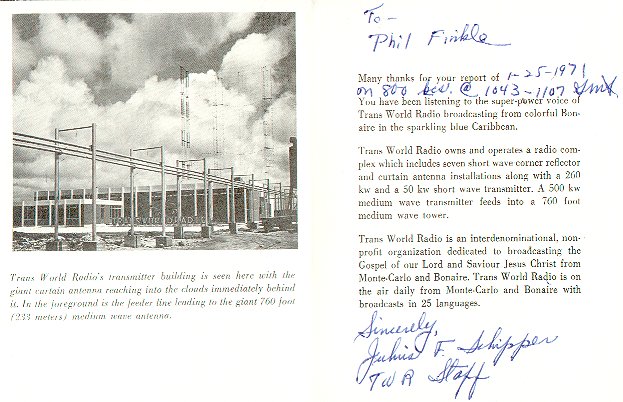 Trans World Radio's transmitter building is seen here with the
giant curtain antenna reaching into the clouds immediately behind
it. In the foreground is the feeder line leading to the giant 760 foot
(233 meters) medium wave antenna.
To -
Phil Finkle
Many thanks for your report of 1-25-1971
on 800 @ 1043-1107 GMT
You have been listening to the super-power voice of
Trans World Radio broadcasting from colorful Bon-
aire in the sparkling blue Caribbean.
Trans World Radio owns and operates a radio com-
plex which includes seven short wave corner reflector
and curtain antenna installations along with a 260
kw and a 50 kw short wave transmitter. A 500 kw
medium wave transmitter feeds into a 760 foot
medium wave tower.
Trans World Radio is an interdenominational, non-
profit organization dedicated to broadcasting the
Gospel of our Lord and Saviour Jesus Christ from
Monte-Carlo and Bonaire. Trans World Radio is on
the air daily from Monte-Carlo and Bonaire with
broadcasts in 25 languages.
Sincerely,
F. Schipper
TWR Staff